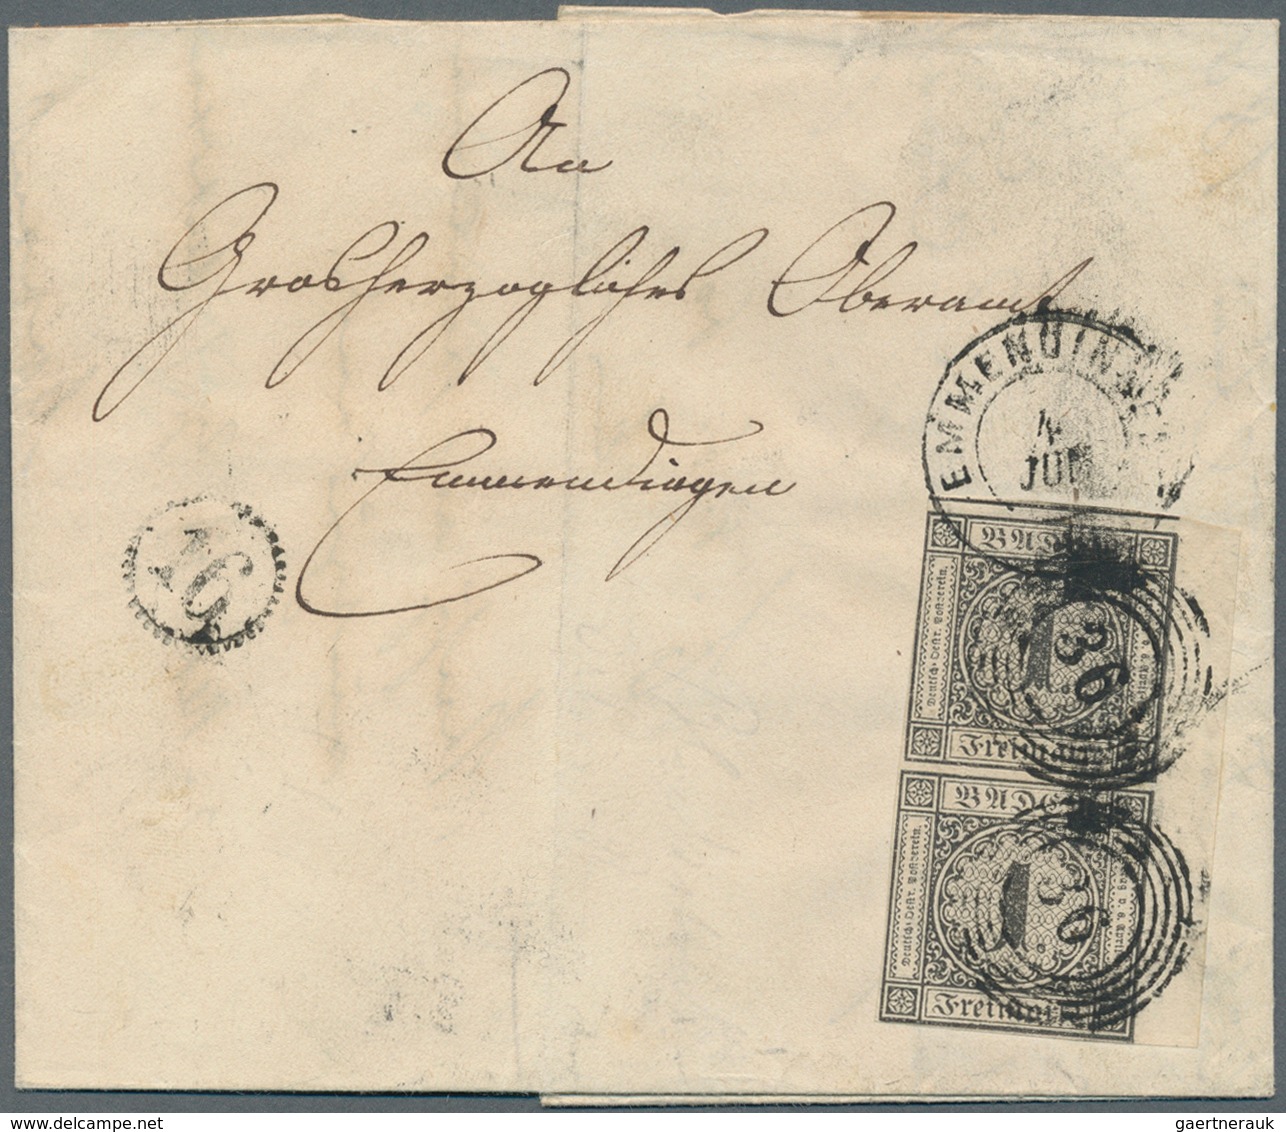 An
Grosherzogliches Oberamt
Emmendingen
EMMENDINGEN
4
JUN
16
BADEN
Deutsch-Oestr. Postverein.
1.
36
Freimarke
BADEN
Deutsch-Oestr. Postverein.
1.
36
v. 6. April
Freimarke
gaertnerauk